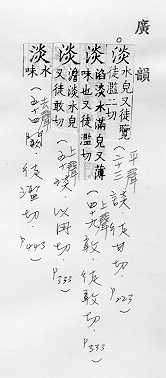 廣韻
淡水皃又徒覽
徒濫二切
平聲
(二十三)談·徒甘切·P.223)
淡淊淡水滿皃又薄
味也又徒濫切
上聲
(四十九)敢·徒敢切·P.333)
淡澹淡水皃
又徒敢切
上聲
(五十琰·以冉切·P.333)
淡水
味
去聲
(五十四)闞·徒濫切·P.443)